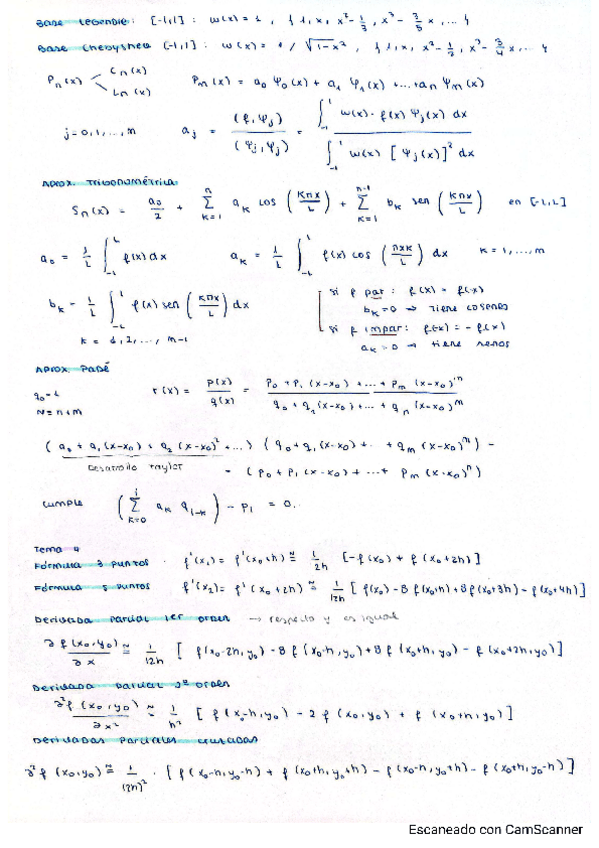 Base Legendre: [-1,1] : w(x)=1 , { 1, x, x²-1/3, x³-3/5 x, ... }
Base Chebyshev [-1,1] : w(x)=1/√(1-x²) , { 1, x, x²-1/2, x³-3/4 x, ... }
Pn(x) < Cn(x) Ln(x)
Pm(x) = a₀ Ψ₀(x) + a₁ Ψ₁(x) + ... + an Ψm(x)
j=0,1,...,m aj = (f,Ψj) / (Ψj,Ψj) = ∫₋₁¹ w(x)·f(x) Ψj(x) dx / ∫₋₁¹ w(x) [Ψj(x)]² dx
Aprox. Trigonométrica
Sn(x) = a₀/2 + Σ_{k=1}^{n} ak cos (kπx/L) + Σ_{k=1}^{n-1} bk sen (kπx/L) en [-L,L]
a₀ = 1/L ∫₋L^L f(x) dx ak = 1/L ∫₋L^L f(x) cos (πxk/L) dx k=1,...,m
bk = 1/L ∫₋L^L f(x) sen (kπx/L) dx
k = 1,2,..., m-1
si f par: f(x) = f(-x)
bk=0 → tiene cosenos
si f impar: f(-x) = -f(x)
ak=0 → tiene senos
Aprox. Padé
q₀=1
N=n+m
r(x) = p(x)/q(x) = p₀ + p₁ (x-x₀) + ... + pm (x-x₀)ⁿ / q₀ + q₁(x-x₀) + ... + qn (x-x₀)ᵐ
(a₀ + a₁(x-x₀) + a₂ (x-x₀)² + ...) (q₀+q₁(x-x₀)+ ... + qm (x-x₀)ᵐ) -
Desarrollo Taylor
- (p₀ + p₁ (x-x₀) + ... + pm (x-x₀)ⁿ)
cumple (Σ_{k=0}^{i} ak q_{i-k}) - pi = 0.
Tema 4
Fórmula 3 puntos · f'(x₁) = f'(x₀+h) ≈ 1/2h [-f(x₀) + f(x₀+2h)]
Fórmula 5 puntos f'(x₂) = f'(x₀+2h) ≈ 1/12h [f(x₀) - 8 f(x₀+h) + 8 f(x₀+3h) - f(x₀+4h)]
Derivada parcial 1er orden → respecto y es igual
∂f(x₀,y₀)/∂x ≈ 1/12h [ f(x₀-2h,y₀) - 8 f(x₀-h,y₀) + 8 f(x₀+h,y₀) - f(x₀+2h,y₀)]
Derivada parcial 2º orden
∂²f(x₀,y₀)/∂x² ≈ 1/h² [ f(x₀-h,y₀) - 2 f(x₀,y₀) + f(x₀+h,y₀)]
Derivadas parciales cruzadas
∂²f(x₀,y₀) ≈ 1/(2h)² · [ f(x₀-h,y₀-h) + f(x₀+h,y₀+h) - f(x₀-h,y₀+h) - f(x₀+h,y₀-h)]
Escaneado con CamScanner